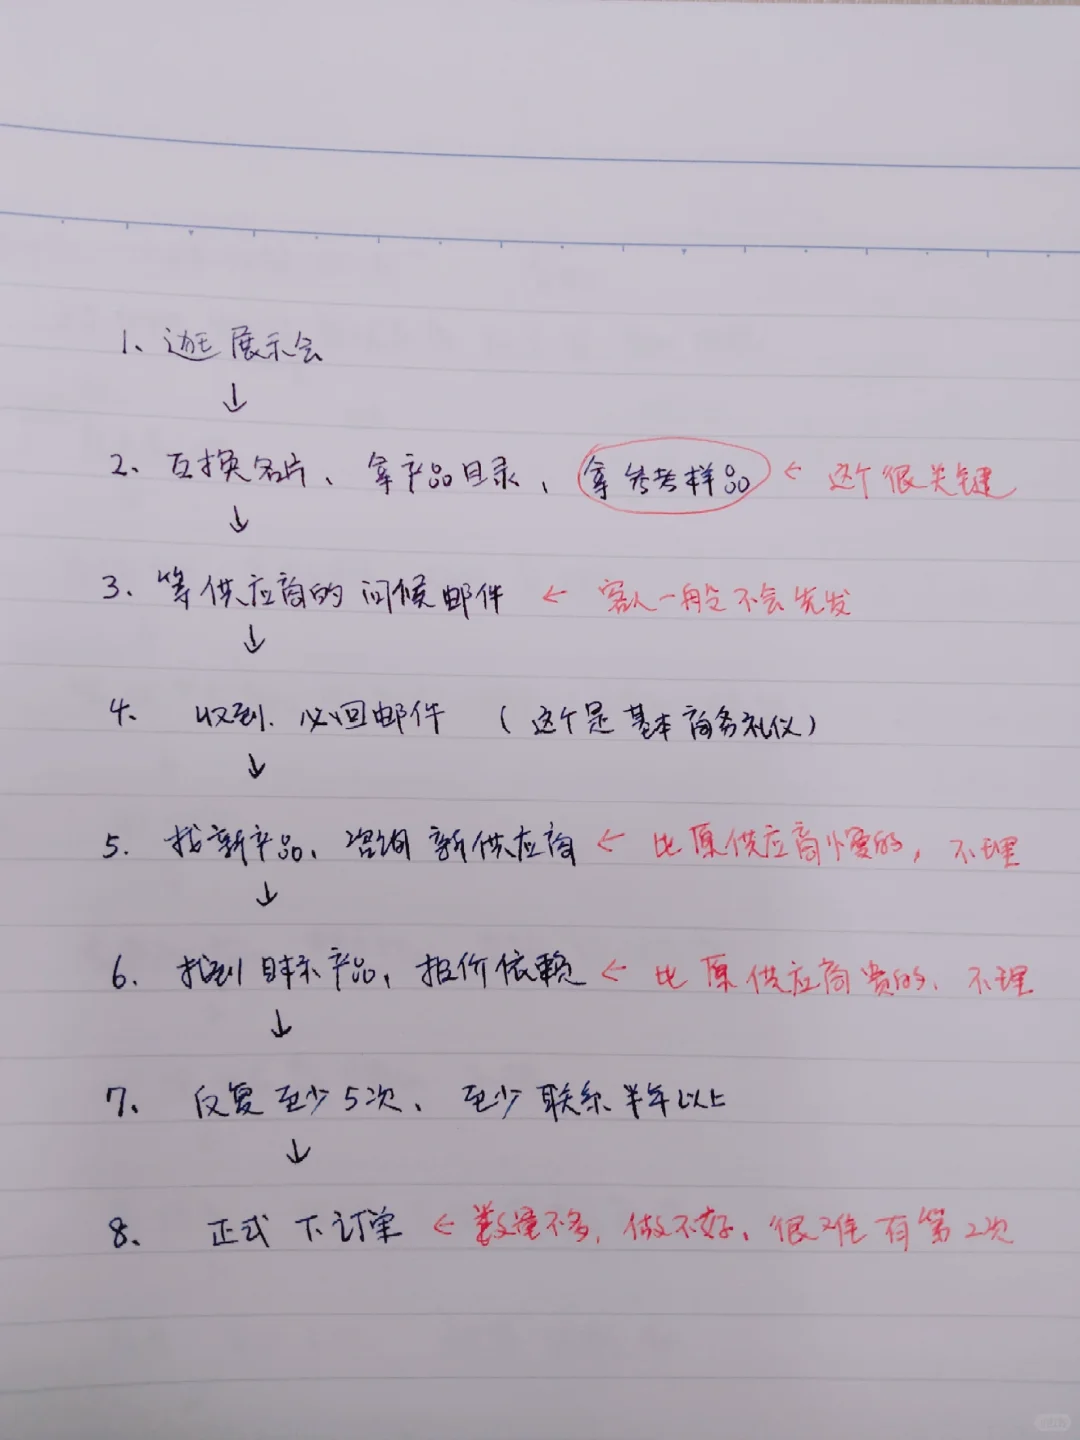 1、逛展示会
↓
2、互换名片、拿产品目录、拿参考样品 ← 这个很关键
↓
3、等供应商的问候邮件 ← 客人一般不会先发
↓
4、收到、必回邮件 (这个是基本商务礼仪)
↓
5、找新产品、咨询新供应商 ← 比原供应商慢的,不理
↓
6、找到目标产品,报价依赖 ← 比原供应商贵的、不理
↓
7、反复至少5次、至少联系半年以上
↓
8、正式下订单 ← 数量不多,做不好、很难有第2次